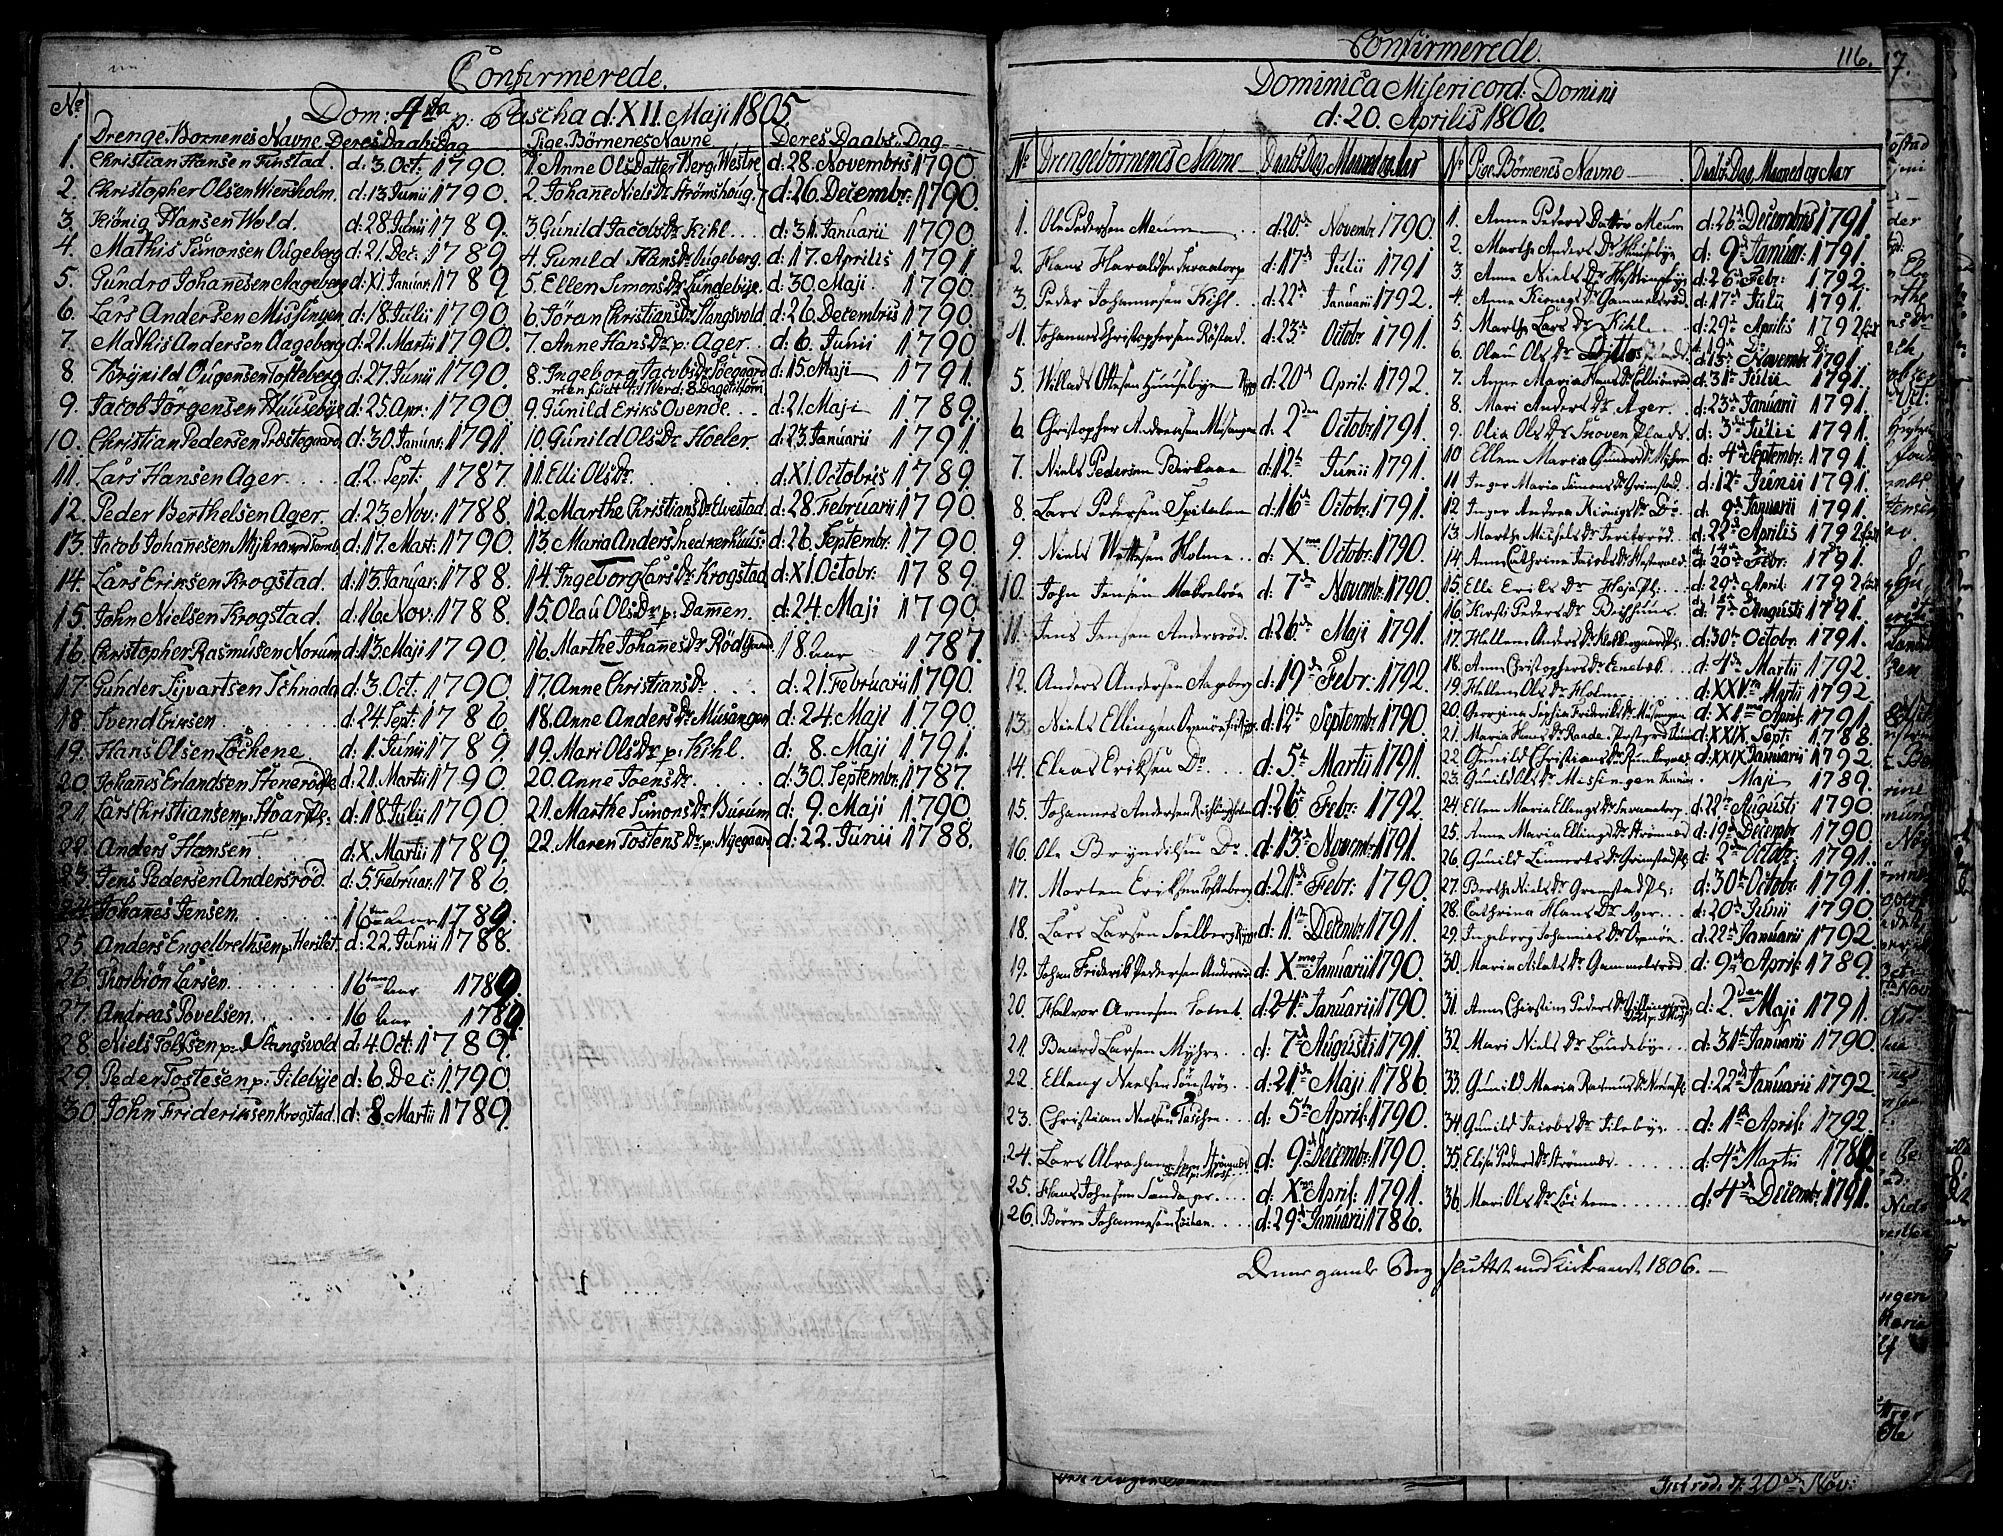 Confirmerede.
Dom: 4ta p: Pascha d: XII. Maji 1805.
No
Drenge-Börnenes Navne Deres Daabs Dag
1. Christian Hansen Finstad. d: 3. Oct: 1790.
2. Christopher Olsen Wiersholm. d: 13. Junii 1790.
3. König Hansen Wold. d: 28. Julii 1789.
4. Mathis Simonsen Ougeberg d: 21. Dec: 1789.
5. Gundro Johañesen Aageberg d: XI. Januar: 1789
6. Lars Andersen Missingen d: 18. Julii 1790
7. Mathis Andersen Aageberg d: 21. Martii 1790.
8. Brÿnild Ougensen Tofteberg d: 27. Junii 1790.
9. Jacob Jörgensen Huusebÿe d: 25. Apr: 1790
10. Christian Pedersen Præstegaard d: 30. Januar: 1791.
11. Lars Hansen Ager. d: 2. Sept: 1787.
12. Peder Berthelsen Ager. d: 23. Nov: 1788.
13. Jacob Johañesen d: 17. Mart: 1790.
14. Lars Eriksen Krogstad. d: 13. Januar: 1788.
15. John Nielsen Krogstad. d: 16. Nov: 1788.
16. Christopher Rasmusen Norum d: 13. Maji 1790.
17. Gunder Sijvartsen Schnoda d: 3. Oct: 1790.
18. Svend Eriksen d: 24. Sept: 1786.
19. Hans Olsen Löchene d: 1. Junii 1789.
20. Johañes Erlandsen Stenerödpl: d: 21. Martii 1790.
21. Lars Christiansen p: Hvarpl: d: 18. Julii 1790.
22. Anders Hansen. d: X. Martii 1789.
23. Jens Pedersen Andersröd. d: 5. Februar: 1786.
24. Johañes Jensen 16ten Aar 1789.
25. Anders Engelbrethsen p: Herslet d: 22. Junii 1788.
26. Thorbiön Larsen 16ten Aar 1789.
27. Andreas Povelsen. 16 Aar 1789
28. Niels Tolfsen p: Slangsvold d: 4. Oct: 1789.
29. Peder Tostesen p: Filebÿe d: 6. Dec: 1790.
30. John Frideriksen Krogstad. d: 8. Martii 1789.
Pige-Börnenes Navne Deres Daabs-Dag
1. Anne Ols Datter Berg-Westre d: 28. Novembris 1790
2. Johane Niels Dr Strömshoug. d: 26. Decembr: 1790.
3. Gunild Jacobs Dr Kihl. d: 31. Januarii 1790
4. Gunild Hans Dr Ougeberg. d: 17. Aprilis 1791.
5. Ellen Simons Dr Lundebÿe. d: 30. Maji. 1790.
6. Jöran Christians Dr Slangsvold d: 26. Decembris 1790
7. Anne Hans Dr p: Ager d: 6. Junii 1790
8. Ingeborg Jacobs Dr Soegaard d: 15. Maji 1791.
9. Gunild Eriks Ovende d: 21. Maji 1789.
10. Gunild Ols Dr Hoeler. d: 23. Januarii 1791.
11. Elli Ols Dr d: XI. Octobris 1789.
12. Marthe Christians Dr Elvestad. d: 28. Februarii 1790.
13. Maria Anders Snedkerhuus: d: 26. Septembr: 1790.
14. Ingeborg Lars Dr Krogstad d: XI. Octobr: 1789.
15. Olau Ols Dr p: Dam̃en. d: 24. Maji 1790.
16. Marthe Johañes Dr 18. Aar 1787.
17. Anne Christians Dr d: 21. Februarii 1790.
18. Anne Anders Dr Musangen d: 24. Maji 1790.
19. Mari Ols Dr p: Kihl. d: 8. Maji 1791.
20. Anne Joens Dr d: 30. Septembr: 1787.
21. Marthe Simons Dr Burum d: 9. Maji 1790.
22. Maren Tostens Dr p: Nijegaard d: 22. Junii 1788.
Confirmerede. 116.
Dominica Misericord: Domini
d: 20. Aprilis 1806.
No Drengebörnenes Navne Daabs Dag, Maaned og Aar
1. Ole Pedersen Meum d: 20de Novembr 1790.
2. Hans Haraldsen d: 17de Julii 1791
3. Peder Johannesen Kihl. d: 22de Januarii 1792.
4. Johannes Christophersen Röstad. d: 23de Octobr 1791.
5. Willads Ottesen Huusebÿe d: 20de April: 1792
6. Christopher Andersen Musangen d: 2den Octobr 1791.
7. Niels Pedersen Birkaae d: 12te Junii 1791.
8. Lars Pedersen Spitalen d: 16de Octobr: 1791.
9. Niels Holme d: Xme Octobr: 1790.
10. John Jensen Makrelröe d: 7de Novembr: 1790.
11. Jens Jensen Andersröd. d: 26de Maji 1791.
12. Anders Andersen Aageberg d: 19de Febr: 1792.
13. Niels Ellingsen d: 12te Septembr 1790.
14. Elias Eriksen Do d: 5te Martii 1791.
15. Johannes Andersen d: 26de Febr: 1792
16. Ole Bryndilsen Do d: 13de Novembr: 1791.
17. Morten Eriksen Tofteberg d: 21de Febr: 1790
18. Lars Larsen d: 1te Decembr: 1791.
19. Johan Friderik Pedersen d: Xme Januarii 1790.
20. Halvor Arnesen d: 24de Januarii 1790.
21. Baard Larsen Myhre d: 7de Augusti 1791.
22. Elling Nielsen d: 21de Maji 1786
23. Christian Nielsen Taschen d: 5te April: 1790.
24. Lars Abrahamsen Strömnes d: 9de Decembr: 1790.
25. Hans Johnsen Sandager d: Xme April: 1791.
26. Börre Johannesen Löcken d: 29de Januarii 1786.
No Pige-Börnenes Navne Daabs Dag, Maaned og Aar
1. Anne Peders Datter Meum d: 26de Decembris 1791.
2. Marthe Anders Dr Huusebÿe d: 9de Januar: 1791.
3. Anne Niels Dr d: 26de Febr: 1792.
4. Anne Kionigs Dr Gammelsröd d: 17de Julii 1791.
5. Marthe Lars Dr Kihl d: 29de Aprilis 1792 föd
6. Olau Ols Dr Dittos d: 13de Novembr 1791.
7. Anne Maria Hans Dr d: 31te Julii 1791.
8. Mari Anders Dr Ager. d: 23de Januarii 1791.
9. Olia Ols Dr d: 3die Julii 1791.
10 Ellen Maria Gunders Dr d: 4de Septembr: 1791.
11 Inger Maria Simons Dr Grimstad. d: 12te Junii 1791.
12 Inger Andrea Kiönigs Dr Do d: 9de Januarii 1791
13. Marthe d: 22de Aprilis 1792 föd
14. Ann Cathrine Jacobs Dr d: 20de Febr: 1791.
15. Elli Eriks Dr d: 29de April 1792 föd
16. Kirsti Peders Dr d: 7de Augusti 1791.
17. Hellen Anders Dr d: 30te Octobr: 1791.
18. Ann Christophers Dr d: 4de Martii 1792.
19. Hellen Ols Dr Holme d: XXVte Martii 1792
20. Georgina Sophia Frideriks Dr Musangen d: XIme April: 1791.
21. Maria Hans Dr d: XXIX. Sept: 1788.
22. Gunild Christians Dr d: XXIX Januarii 1792.
23. Gunild Ols Dr Missingen Maji 1789.
24. Ellen Maria Ellings Dr d: 22de Augusti 1790
25. Anne Maria Ellings Dr Strömnes d: 19de Decembr 1790.
26. Gunild Dr Grimstad pl: d: 2den Octobr: 1791.
27. Berthe Niels Dr Grimstad pl: d: 30te Octobr 1791.
28. Cathrina Hans Dr Ager d: 20de Junii 1790.
29. Ingeborg Johannes Dr d: 22de Januarii 1792.
30. Maria Dr Gammelsröd d: 9de April: 1789.
31. Ann Christine Peders Dr d: 2den Maji 1791.
32. Mari Niels Dr Lundebÿe d: 31te Januarii 1790.
33. Gunild Maria d: 22de Januarii 1792.
34. Gunild Jacobs Dr Filebÿe d: 1te April: 1792.
35. Elise Peders Dr Strömnes d: 4de Martii 1789.
36. Mari Ols Dr Löchene d: 4de Decembr 1791.
Denne gamle Bog sluttet med Kirkeaaret 1806.